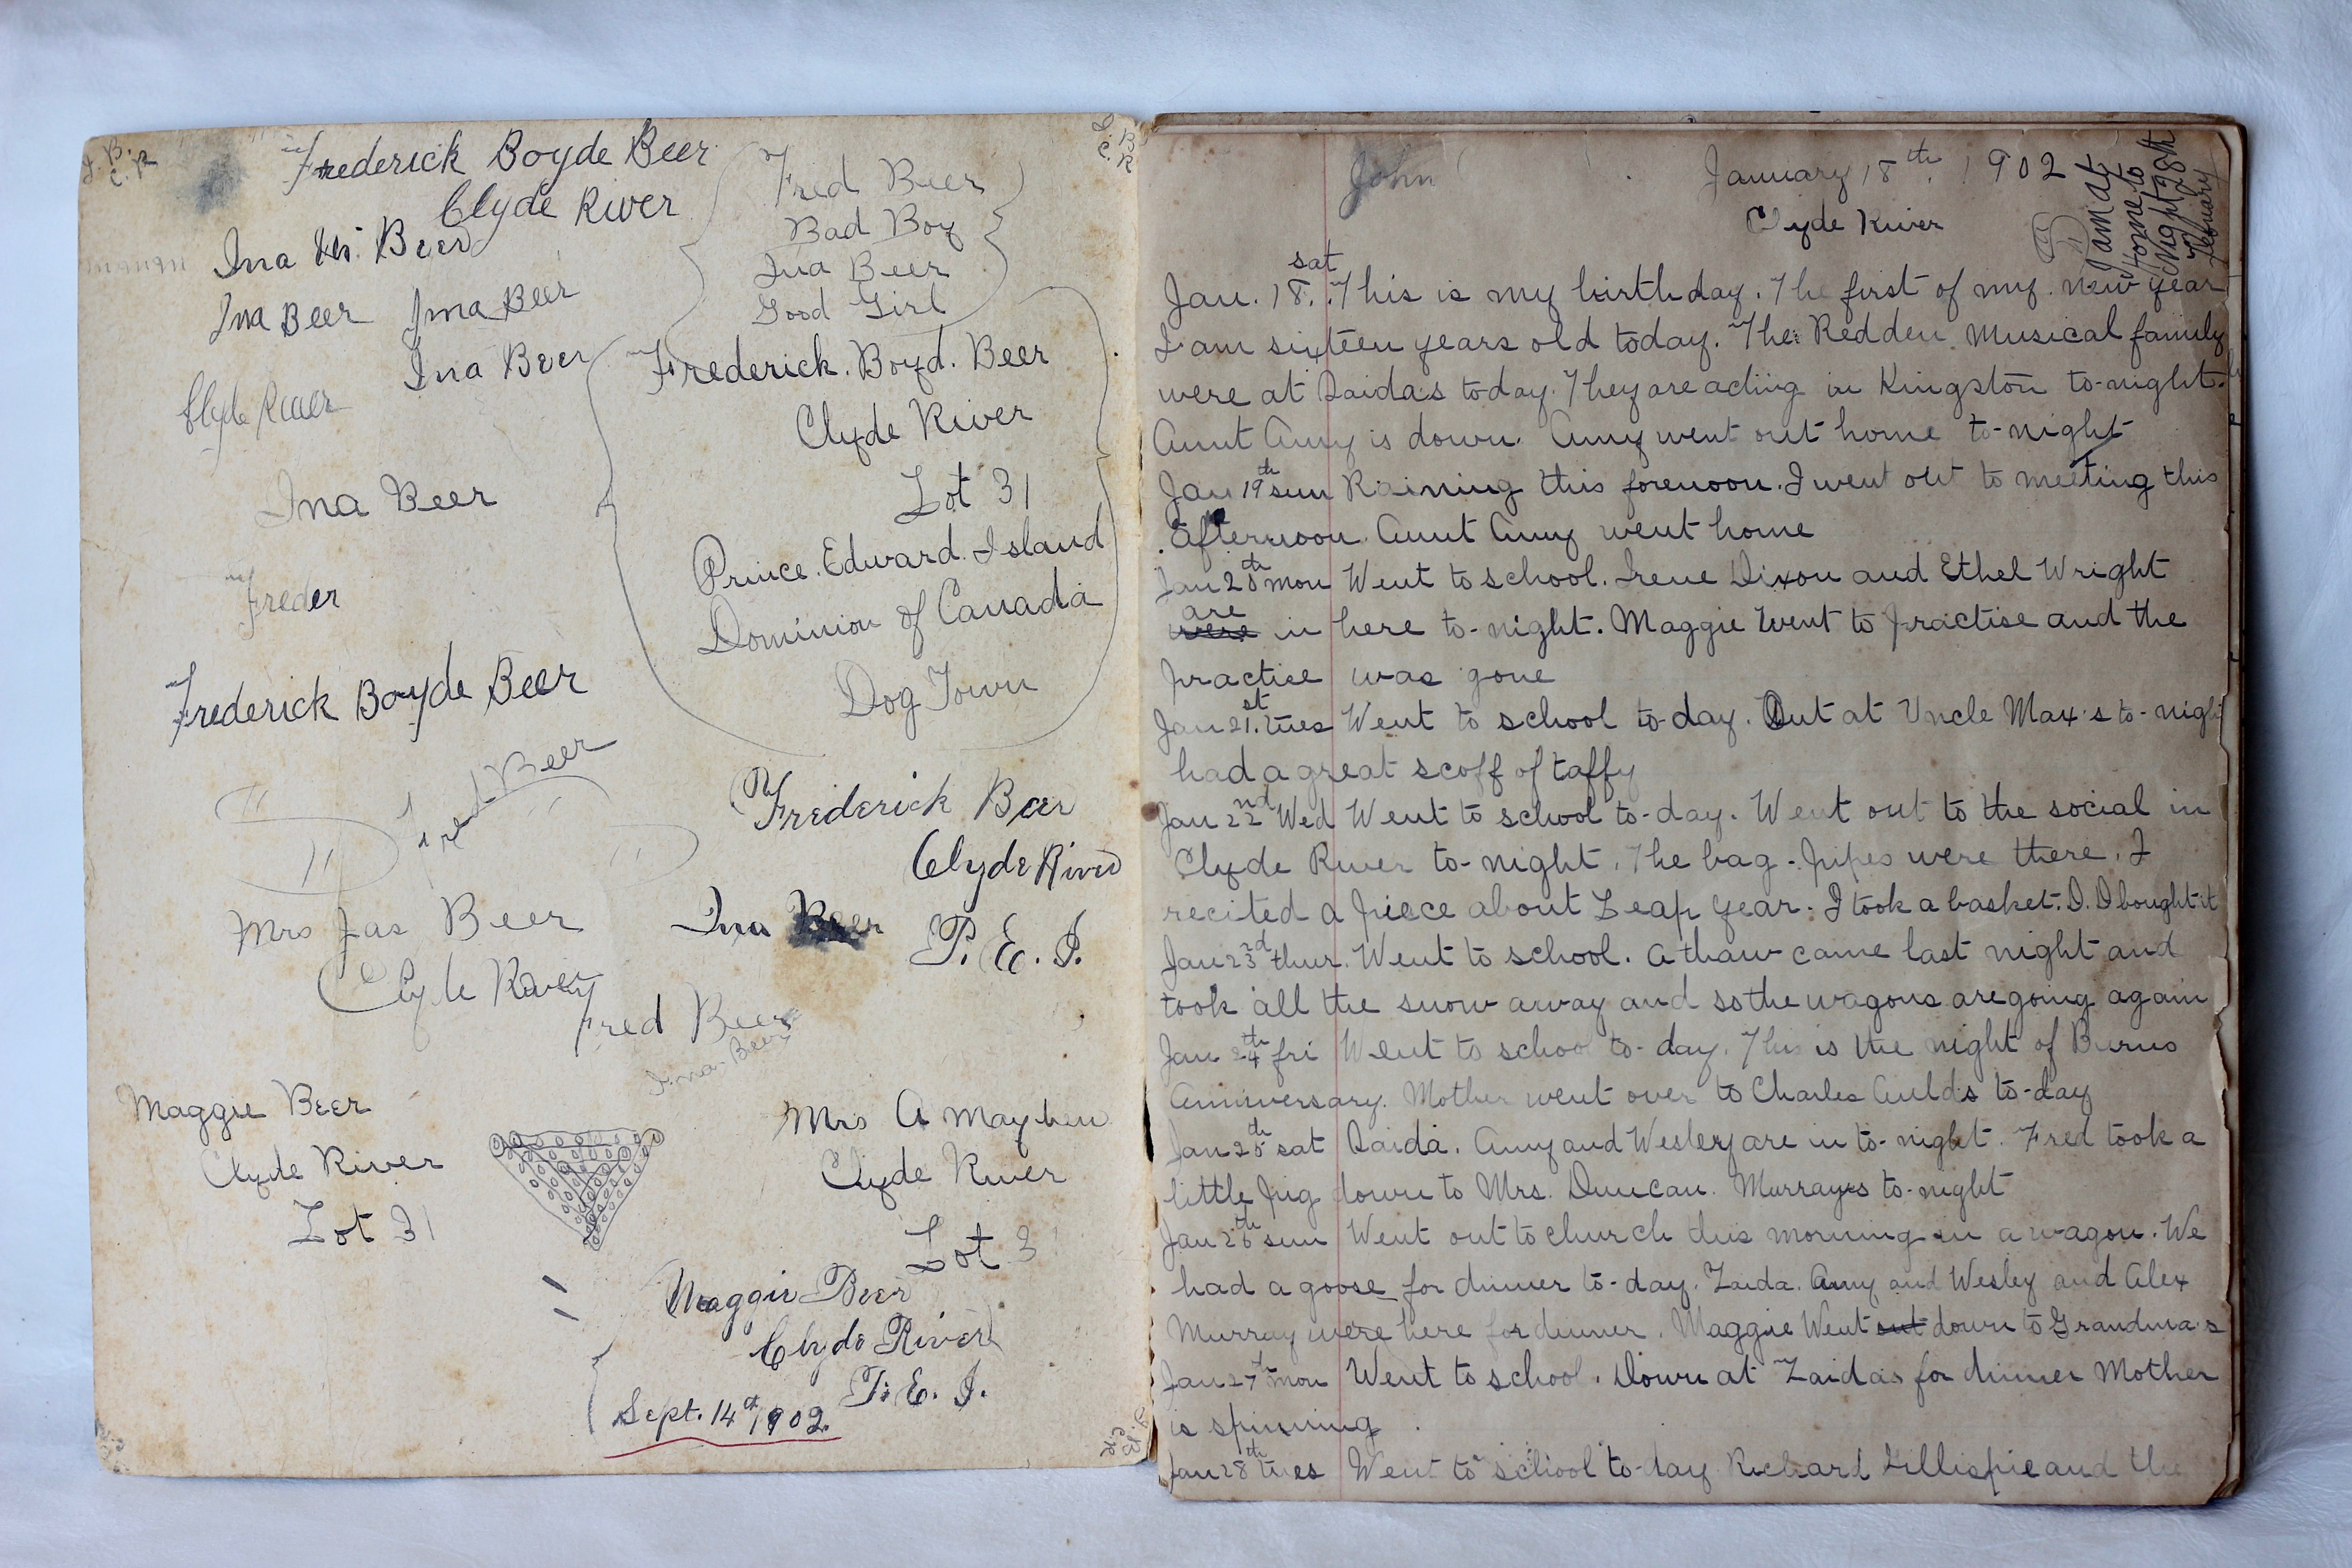 Frederick Boyde Beer
Clyde River
Ina M. Beer
Ina Beer Ima Beer
Ina Beer
Clyde River
Ina Beer
Freder
Frederick Boyde Beer
Fred Beer
Mrs Jas Beer
Clyde River
Fred Beer
Ina Beer
Maggie Beer
Clyde River
Lot 31
Fred Beer
Bad Boy
Ina Beer
Good Girl
Frederick. Boyd. Beer
Clyde River
Lot 31
Prince. Edward. Island
Dominion of Canada
Dog Town
Frederick Beer
Clyde River
Ina Beer P. E. I.
Mrs A Mayhew
Clyde River
Lot 3
Maggie Beer
Clyde River
P. E. I.
Sept. 14th 1902.
John
January 18th. 1902
Clyde River
I am at
Home to
night 28th
of
February
Jan. 18. sat. This is my birthday. The first of my new year
I am sixteen years old today. The Redden Musical family
were at Zaida's today. They are acting in Kingston to-night.
Aunt Amy is down. Amy went out home to-night
Jan 19th sun Raining this forenoon. I went out to meeting this
afternoon. Aunt Amy went home
Jan 20th mon Went to school. Irene Dixon and Ethel Wright
were are in here to-night. Maggie went to practise and the
practise was gone
Jan 21.st tues Went to school to-day. Out at Uncle Max's to-night
had a great scoff of taffy
Jan 22nd Wed Went to school to-day. Went out to the social in
Clyde River to-night. The bag-pipes were there. I
recited a piece about Leap year. I took a basket. D. D bought it
Jan 23rd thur. Went to school. A thaw came last night and
took all the snow away and so the wagons are going again
Jan 24th fri Went to school to-day. This is the night of Burns
Anniversary. Mother went over to Charles Auld's to-day
Jan 25th sat Zaida. Amy and Wesley are in to-night. Fred took a
little pig down to Mrs. Duncan. Murrays to-night
Jan 26th sun Went out to church this morning in a wagon. We
had a goose for dinner to-day. Zaida. Amy and Wesley and Alex
Murray were here for dinner. Maggie Went out down to Grandma's
Jan 27th mon Went to school. Down at Zaidas for dinner Mother
is spinning
Jan 28th tues Went to school to-day Richard Gillispie and the